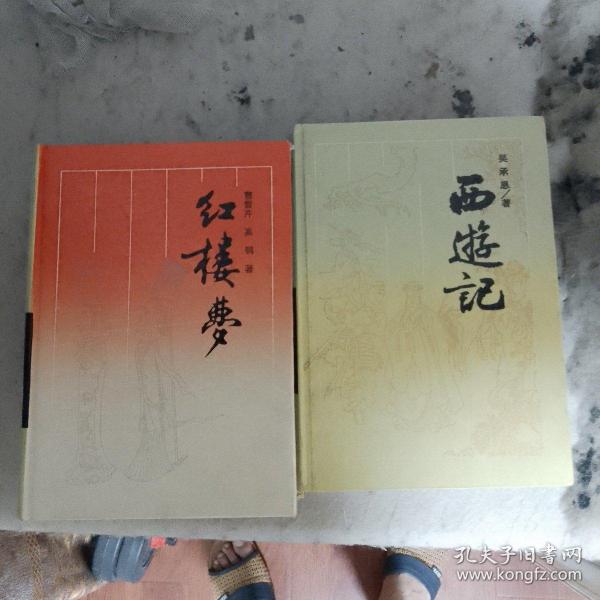 红楼梦
曹雪芹 高鹗 著
西遊記
吴承恩/著
孔夫子旧书网
www.kongfz.com